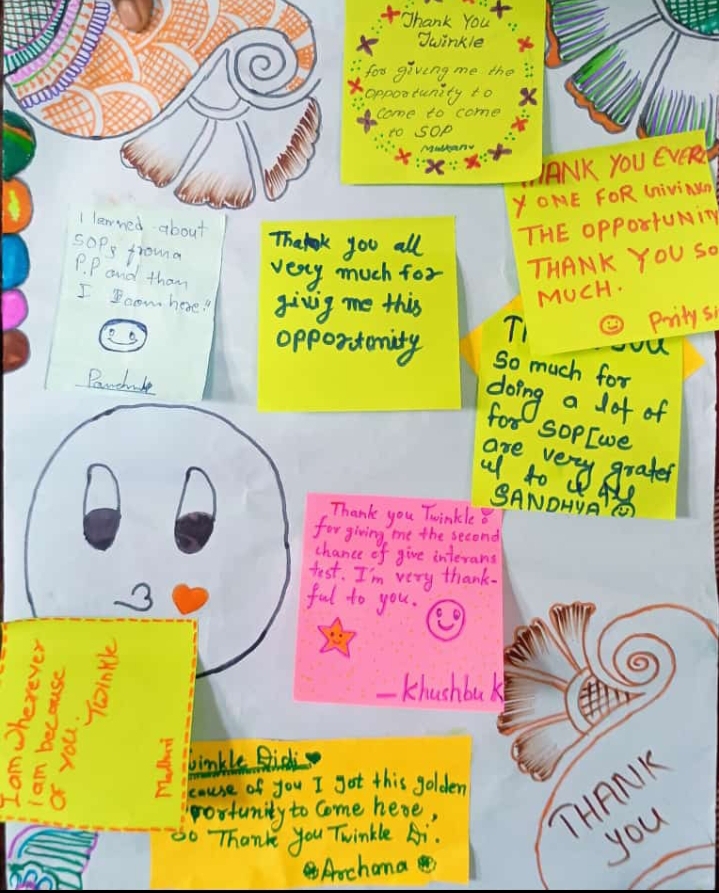 Thank You
Twinkle
for giving me the
opportunity to
come to come
to SOP
THANK YOU EVER
Y ONE FOR
THE OPPORTUNIT
THANK YOU SO
MUCH.
Prity Si
I larned about
SOPs from a
P.P and than
I
Thank you all
very much for
givig me this
opportunity
So much for
doing a lot of
for SOP [we
are very gratef
ul to
SANDHYA
Thank you Twinkle
for giving me the second
chance of give interans
test. I'm very thank-
ful to you.
— Khushbu K
I am wherever
I am because
of you. Twinkle
Madhri
winkle Didi
cause of you I got this golden
portunity to Come here,
So Thank You Twinkle Di.
Archana
THANK
YOU